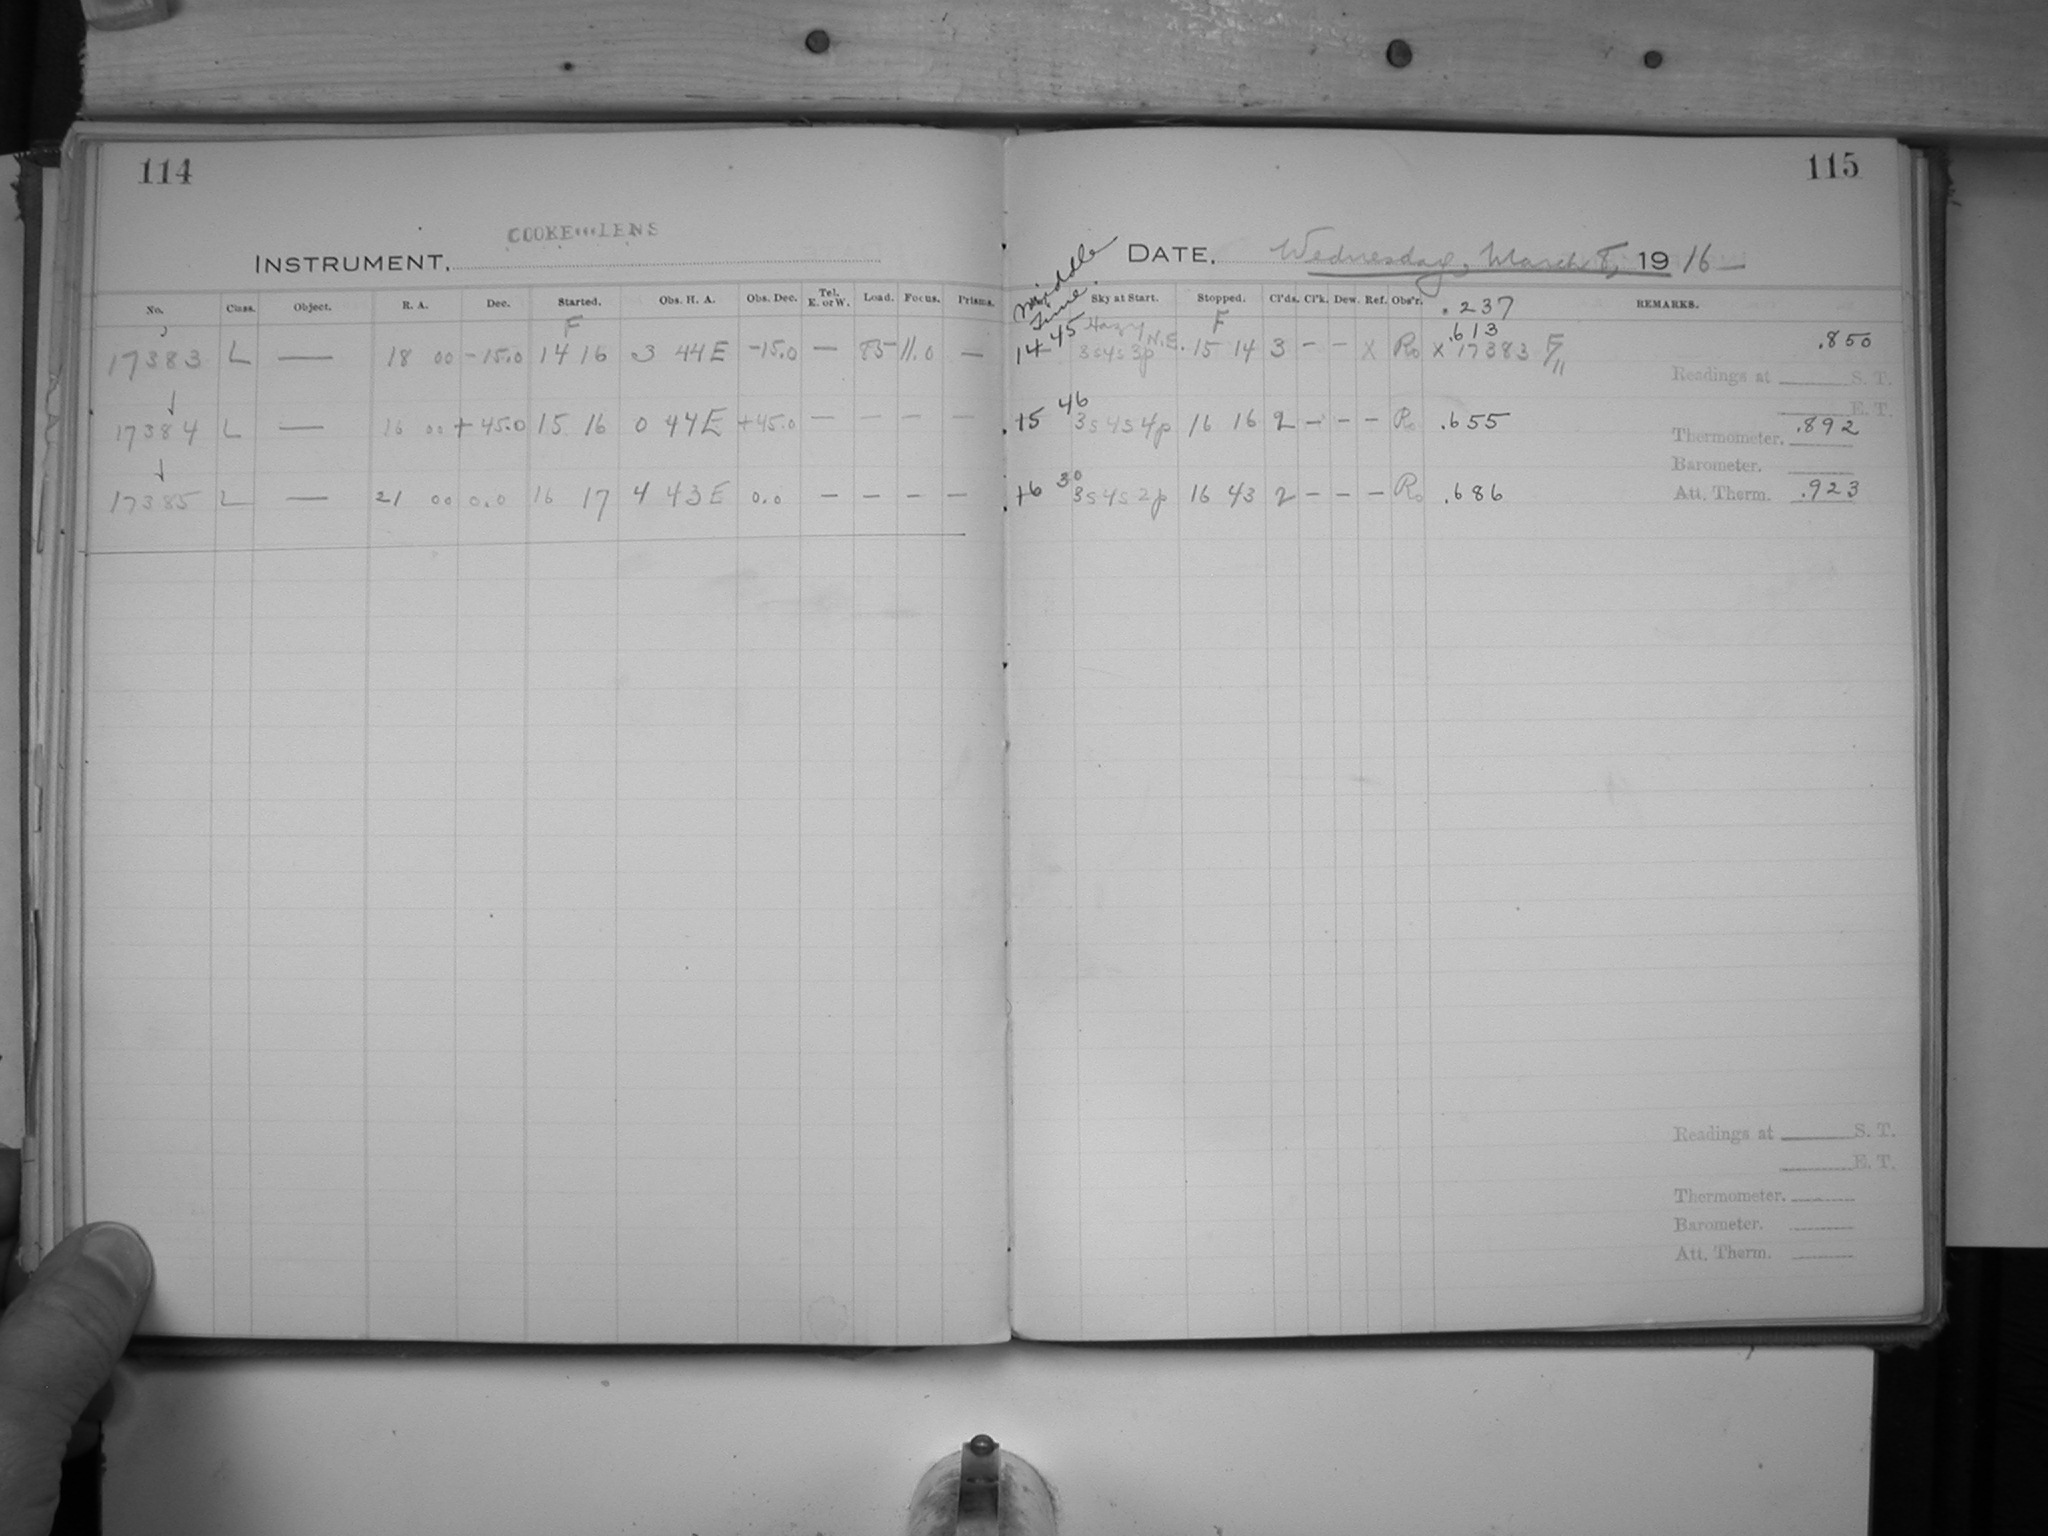 114
COOKE LENS
INSTRUMENT.
No. Class. Object. R. A. Dec. Started. Obs. H. A. Obs. Dec. Tel. E. or W. Load. Focus. Prisms.
F
17383 L — 18 00 -15.0 14 16 3 44E -15.0 — 85 11.0 —
17384 L — 16 00 +45.0 15 16 0 44E +45.0 — — — —
17385 L — 21 00 0.0 16 17 4 43E 0.0 — — — —
115
DATE. Wednesday, March 8, 1916
Middle Time.
Sky at Start. Stopped. Cl'ds. Cl'k. Dew. Ref. Obs'r. REMARKS.
.237
Hazy N.E. F .613
14 45 3s4s3p 15 14 3 - - x Ro x 17383 F/11 .850
Readings at S. T.
E. T.
15 46 3s4s4p 16 16 2 - - - Ro .655 .892
Thermometer.
Barometer.
16 30 3s4s2p 16 43 2 - - - Ro .686 .923
Att. Therm.
Readings at S. T.
E. T.
Thermometer.
Barometer.
Att. Therm.